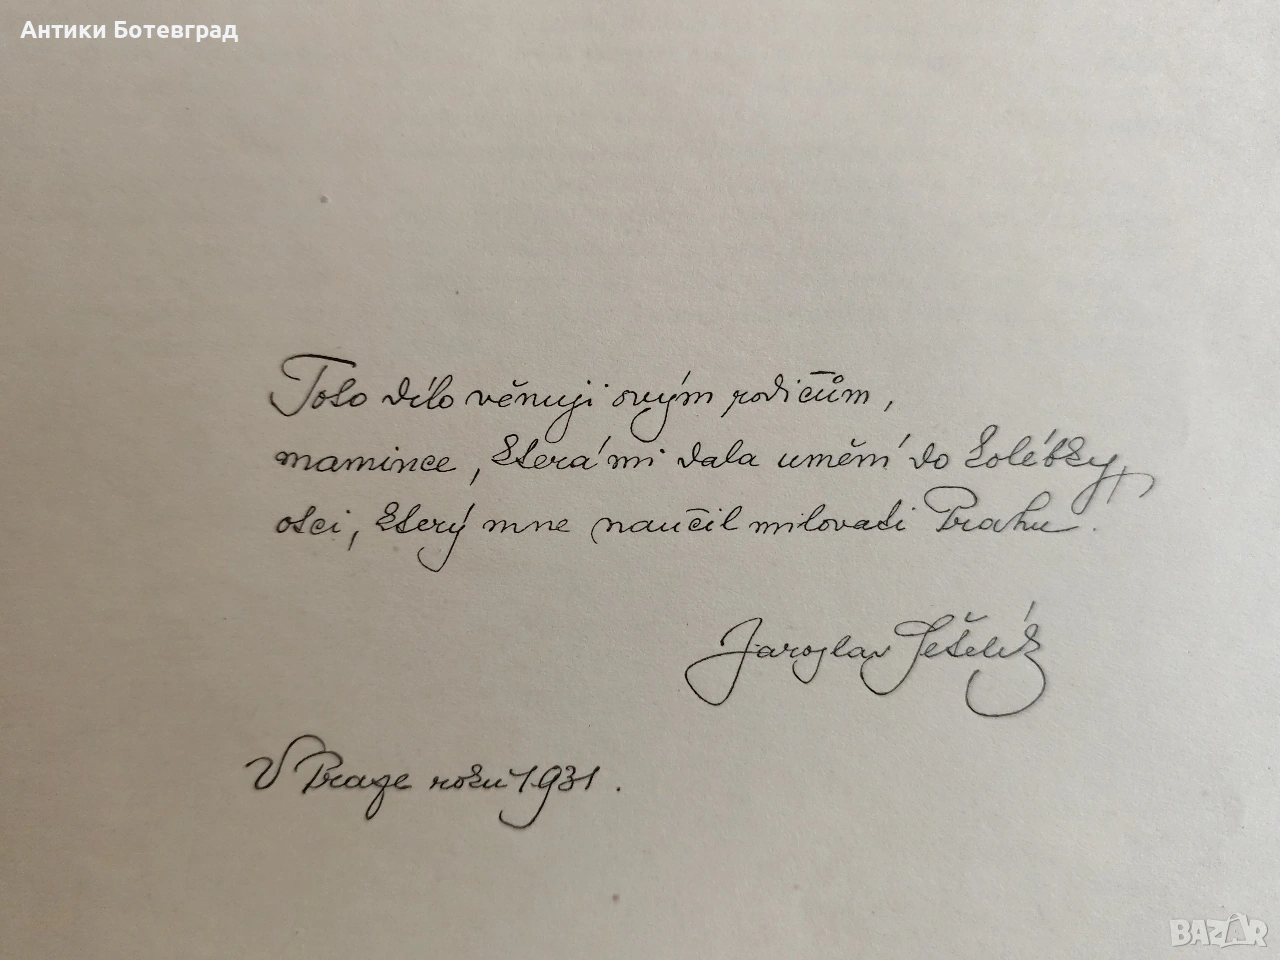 Антики Ботевград
Toto dílo věnuji svým rodičům,
mamince, která mi dala umění do kolébky,
otci, který mne naučil milovati Prahu.
Jaroslav Šetelík
V Praze roku 1931.
BAZAR